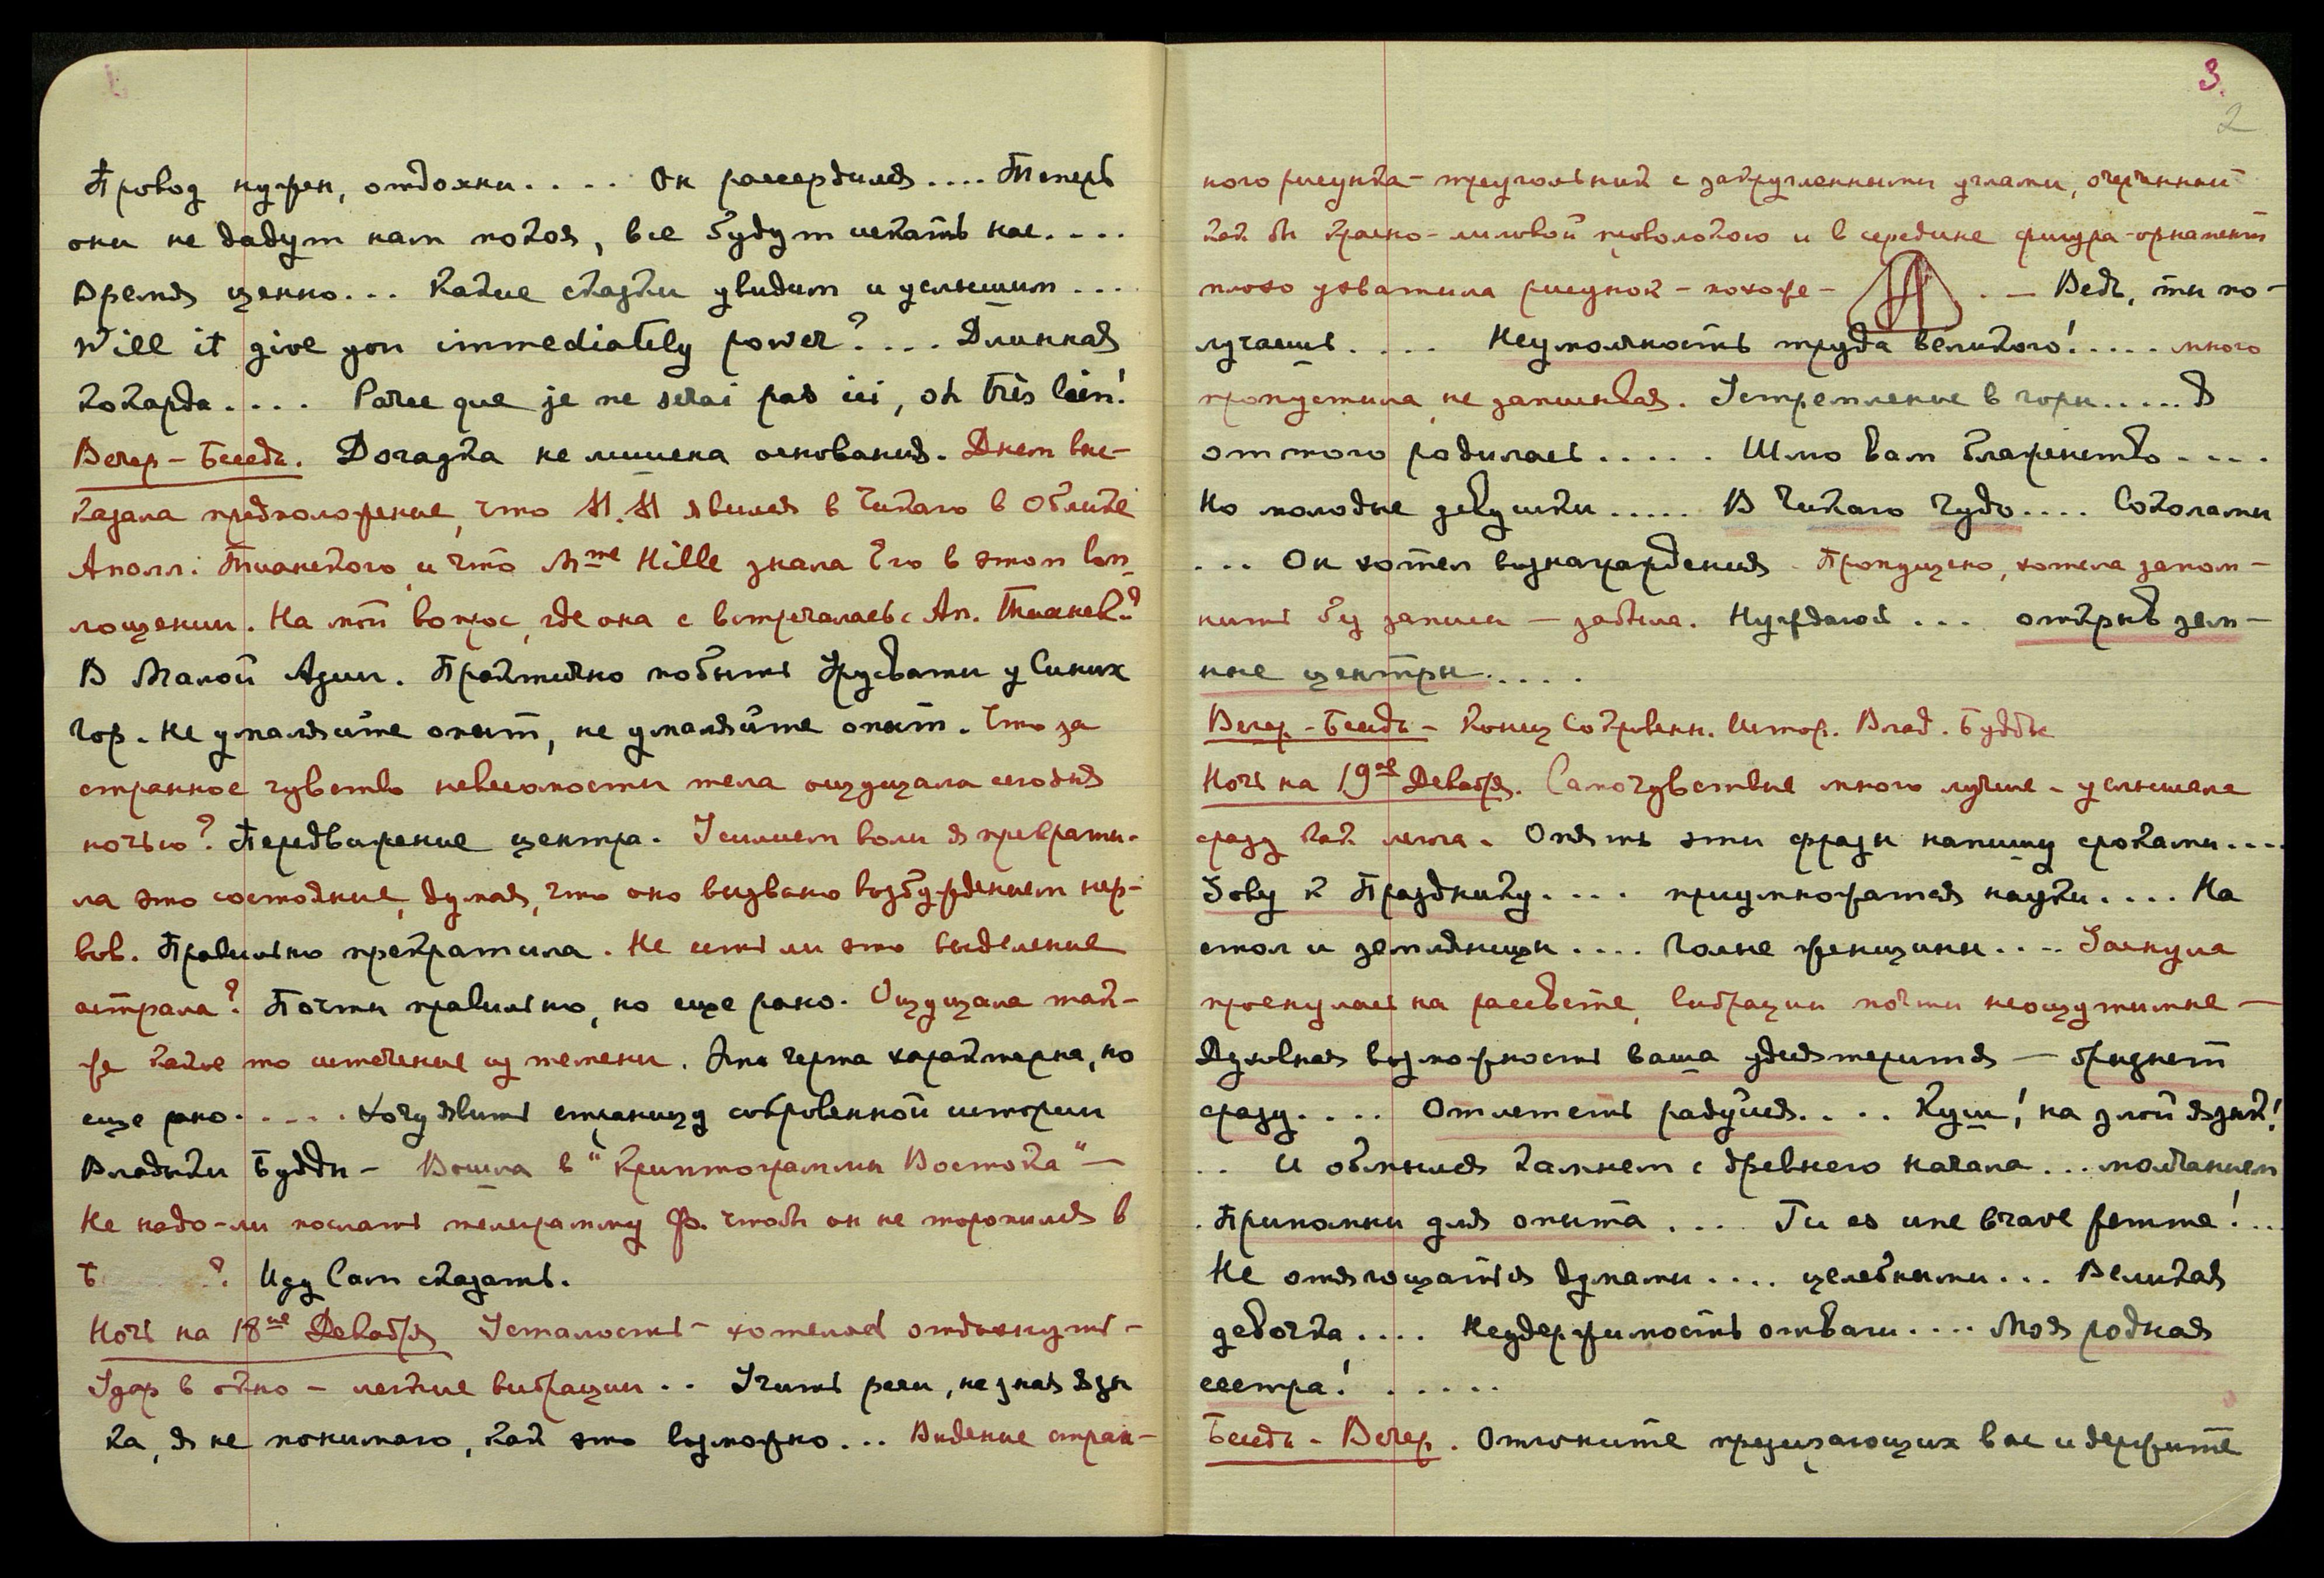 Провод нужен, отдохни..... Он рассердился.... Теперь
они не дадут нам покоя, все будут искать нас....
Время ценно... Какие сказки увидим и услышим...
Will it give you immediately power?.... Длинная
кокарда.... Parce que je ne serai pas ici, oh très loin!
Вечер – Беседа. Догадка не лишена основания. Днем выс-
казала предположение, что М.М явился в Чикаго в Облике
Аполл. Тианского и что Mme Hille знала Его в этом воп-
лощении. На мой вопрос, где она с встречалась с Ап. Тианск.?
В Малой Азии. Практично побыть Урусвати у Синих
Гор. Не умаляйте опыт, не умаляйте опыт. Что за
странное чувство невесомости тела ощущала сегодня
ночью? Передвижение центра. Усилием воли я преврати-
ла это состояние, думая, что оно вызвано возбуждением нер-
вов. Правильно прекратила. Не есть ли это выделение
астрала? Почти правильно, но еще рано. Ощущала так-
же какое то истечение из темени. Эта черта характерна, но
еще рано..... Хочу явить страницу сокровенной истории
Владыки Будды – Вошла в "Криптограммы Востока" –
Не надо-ли послать телеграмму Ф. чтобы он не торопился в
Т ?. Иду Сам сказать.
Ночь на 18ое Декабря Усталость – хотелось отдохнуть –
Удар в окно – легкие вибрации.. Учить речи, не зная язы
ка, я не понимаю, как это возможно... Видение стран-
3.
2
ного рисунка – треугольник с закругленными углами, очерченный
как бы красно-лиловой проволокою и в середине фигура-орнамент
плохо ухватила рисунок – похоже – . – Ведь, ты по-
лучаешь.... Неумолкность труда великого!..... много
пропустила, не записывая. Устремление в горы..... Я
от того родилась..... Шлю вам блаженство....
Но молодые девушки..... В Чикаго Чудо.... Соколами
... Он хотел вознаграждения. Пропущено, хотела запом-
нить без записи – забыла. Нуждаюсь... открыв зем-
ные центры.....
Вечер – Беседа – Конец Сокровенн. Истор. Влад. Будды
Ночь на 19ое Декабря. Самочувствие много лучше – услышала
сразу как легла. Опять эти фразы напишу сроками....
Зову к Празднику.... приумножатся науки.... На
стол и земляницы.... Голые женщины.... Заснула
проснулась на рассвете, вибрации почти неощутимые –
Духовная возможность ваша удесятерится – брызнет
сразу.... Отлететь радуйся.... Куш! на злой язык!
.. И обмылся камнем с древнего начала... молчанием
. Припомни для опыта... Tu es une brave femme!...
Не отягощаться думами.... целебными... Великая
девочка.... Неудержимость отваги.... Моя родная
сестра!.....
Беседа – Вечер. Отгоните презирающих вас и держите